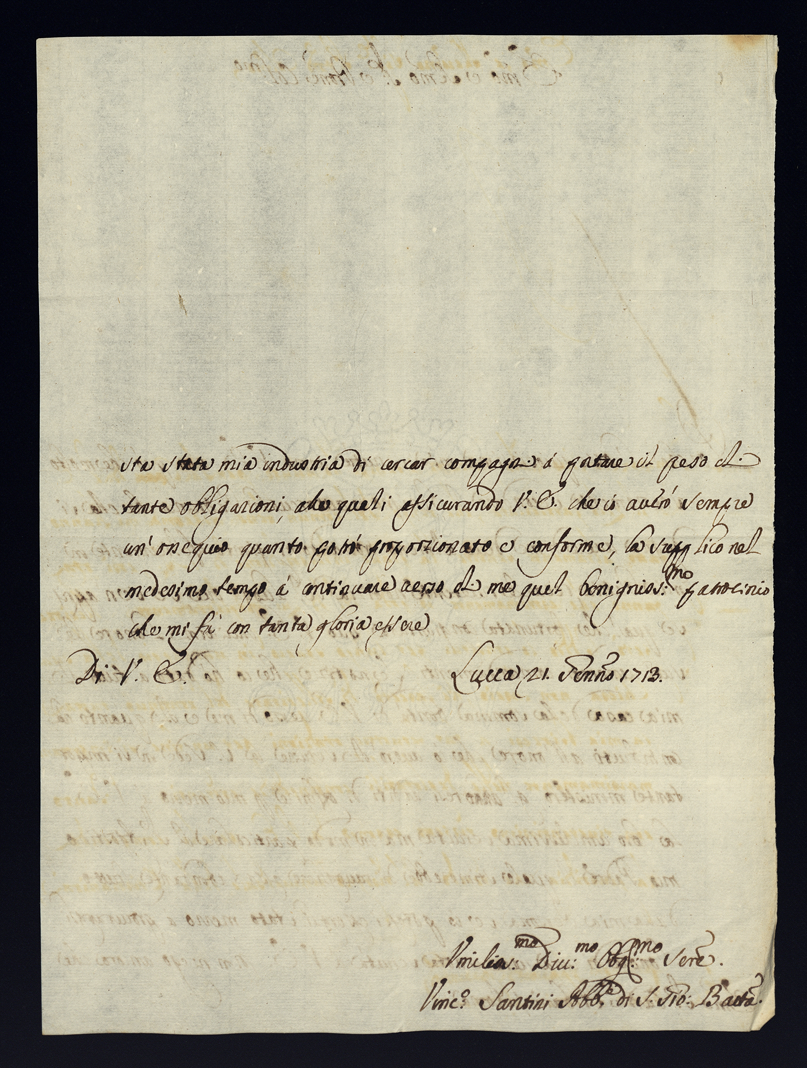 sta stata mia industria di cercar compagni á portare il peso di
tante obbligazioni, alle quali assicurando V. E. che io avrò sempre
un' ossequio quanto potrò proporzionato e conforme, la supplico nel
medesimo tempo á continuare verso di me quel benignis:mo patrocinio
che mi fà con tanta gloria essere
Di V. E. Lucca 21. Genn.o 1713.
Umilis:mo Diu:mo Obg:mo Ser.e
Vinc.o Santini Abb.e di S. Gio: Batta.